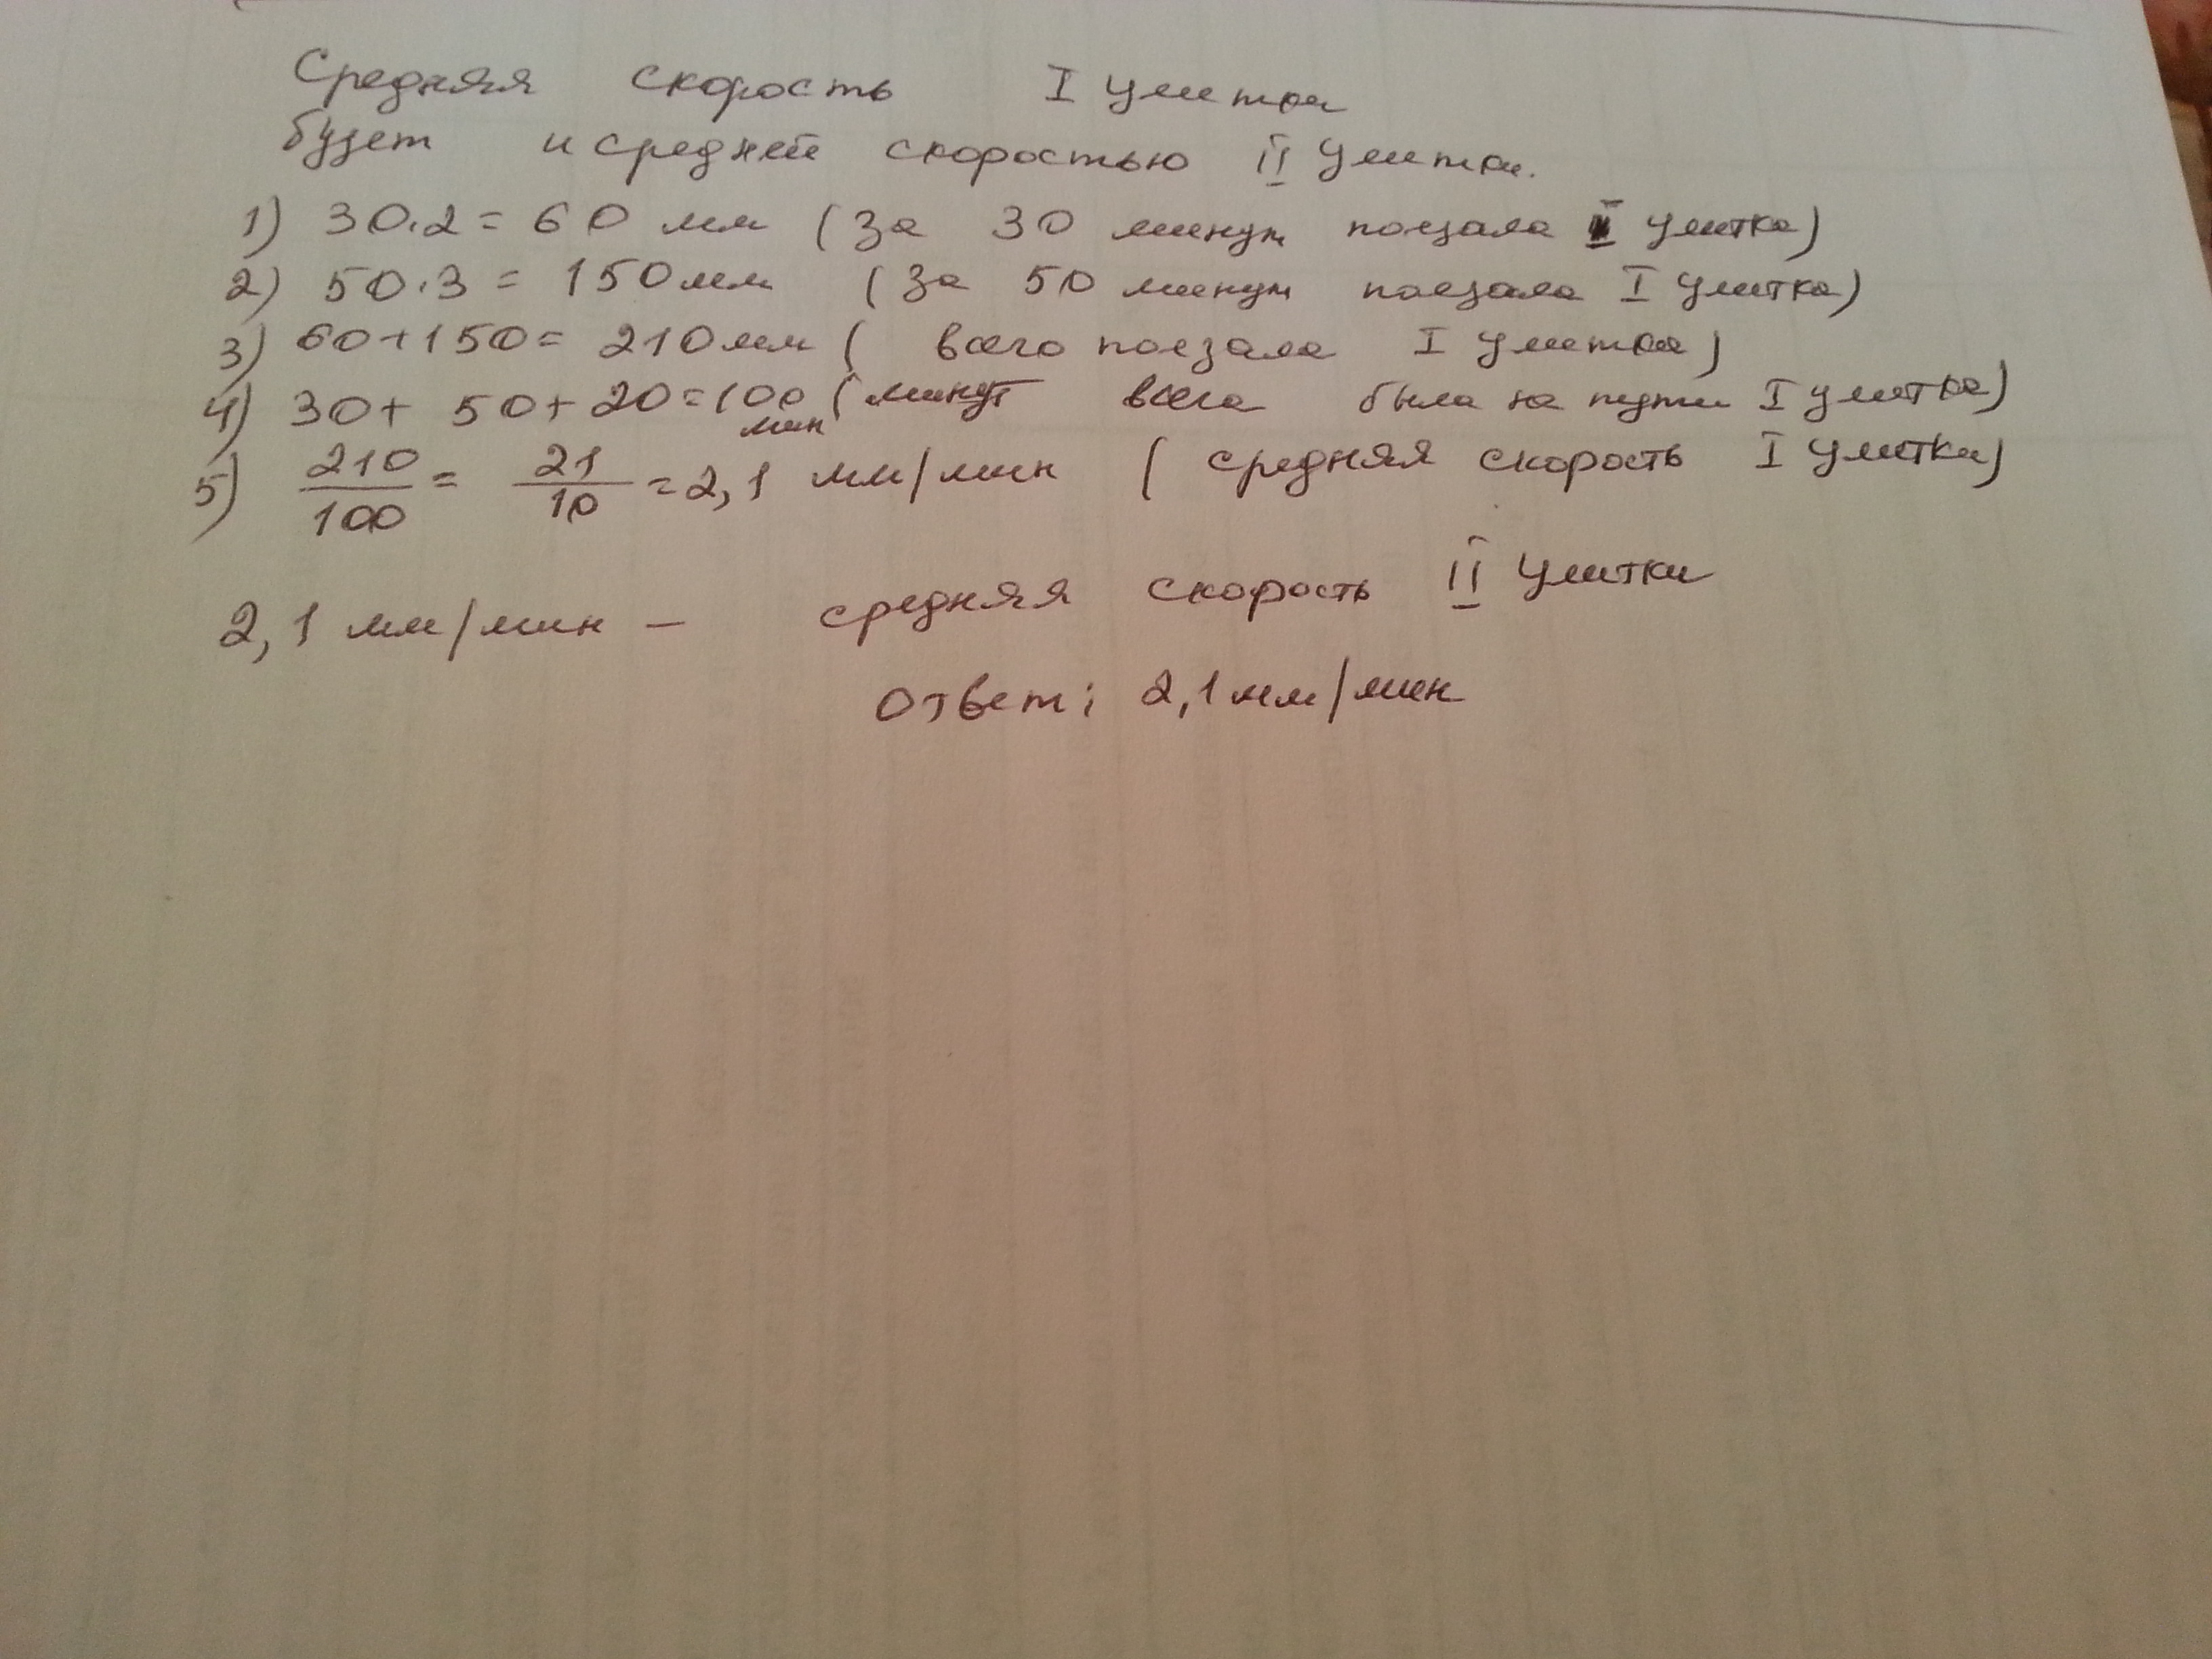 Средняя скорость I улитки
будет и средней скоростью II улитки.
1) 30·2 = 60 мм (за 30 минут поезала I улитка)
2) 50·3 = 150 мм (за 50 минут поезала I улитка)
3) 60+150 = 210 мм (всего поезала I улитка)
4) 30+ 50+ 20=100 мин (минут всего была на пути I улитка)
5) 210/100 = 21/10 = 2,1 мм/мин (средняя скорость I улитки)
2,1 мм/мин – средняя скорость II улитки
Ответ: 2,1 мм/мин